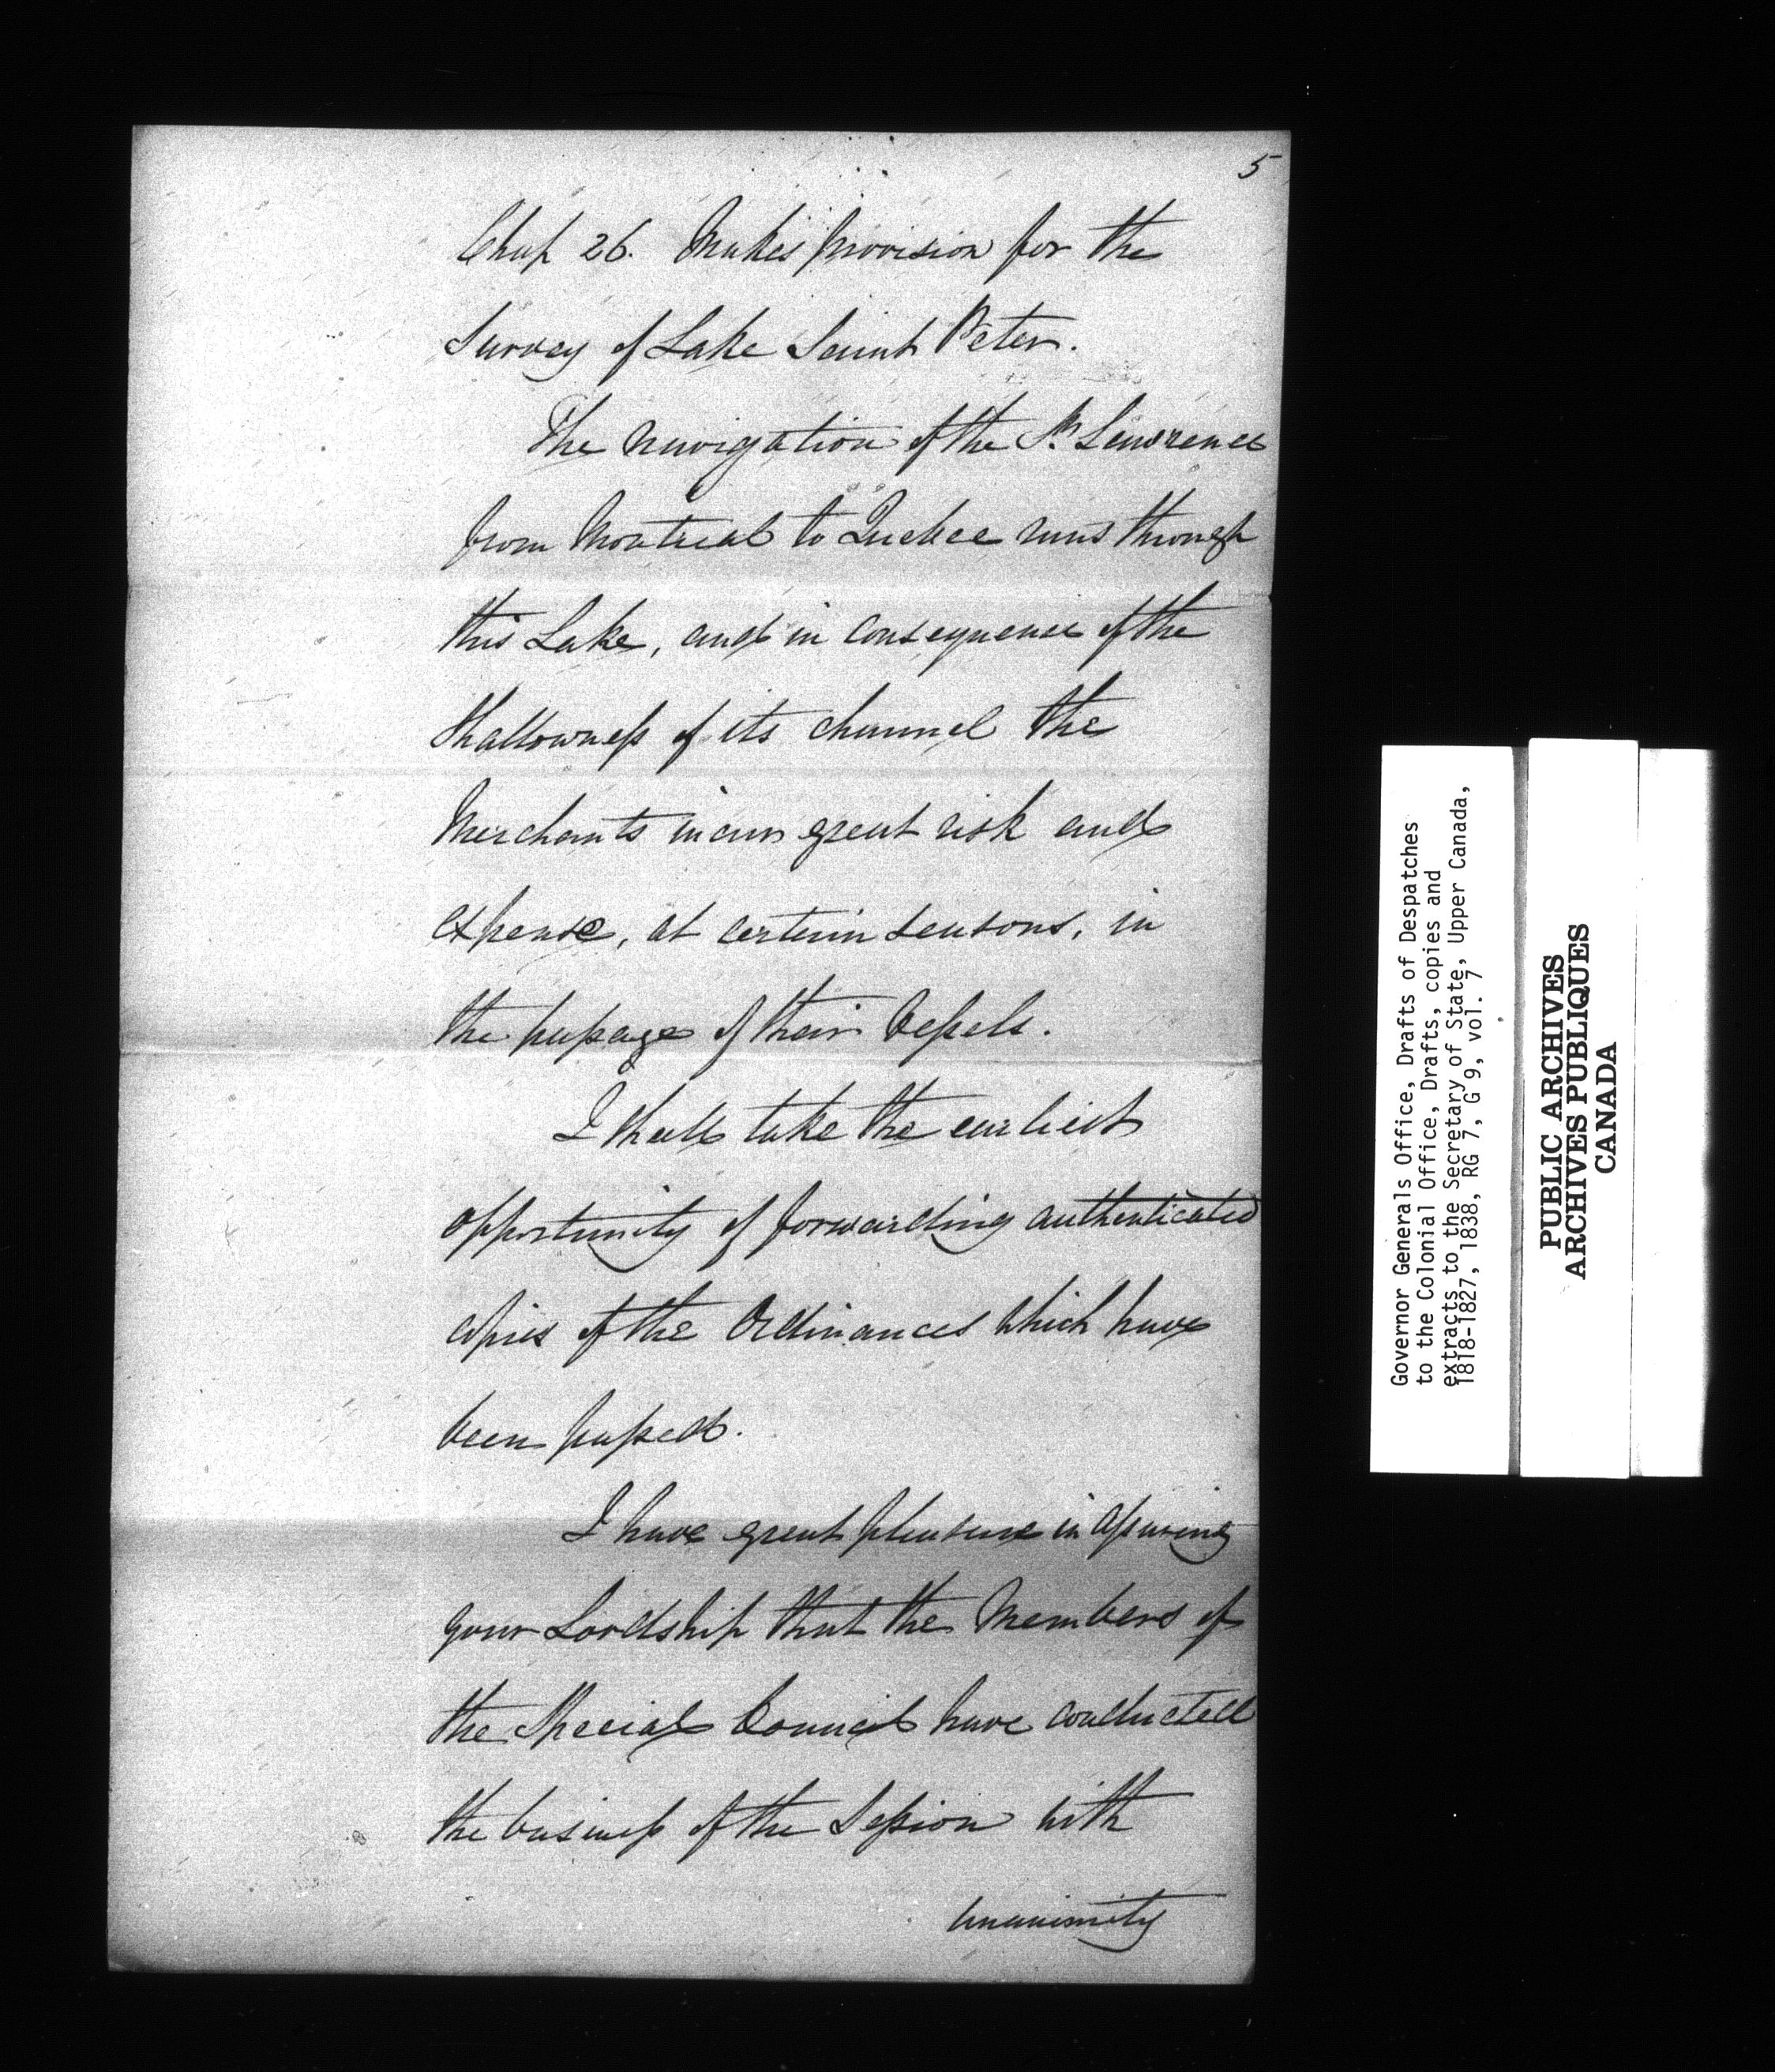 5
Chap 26. Makes provision for the
Survey of Lake Saint Peter.
The navigation of the St. Lawrence
from Montreal to Quebec runs through
this Lake, and in consequence of the
shallowness of its channel the
Merchants incur great risk and
expense, at certain seasons, in
the passage of their Vessels.
I shall take the earliest
opportunity of forwarding authenticated
copies of the Ordinances which have
been passed.
I have great pleasure in assuring
your Lordship that the Members of
the Special Council have conducted
the business of the Session with
unanimity
Governor Generals Office, Drafts of Despatches
to the Colonial Office, Drafts, copies and
extracts to the Secretary of State, Upper Canada,
1818-1827, 1838, RG 7, G 9, vol. 7
PUBLIC ARCHIVES
ARCHIVES PUBLIQUES
CANADA